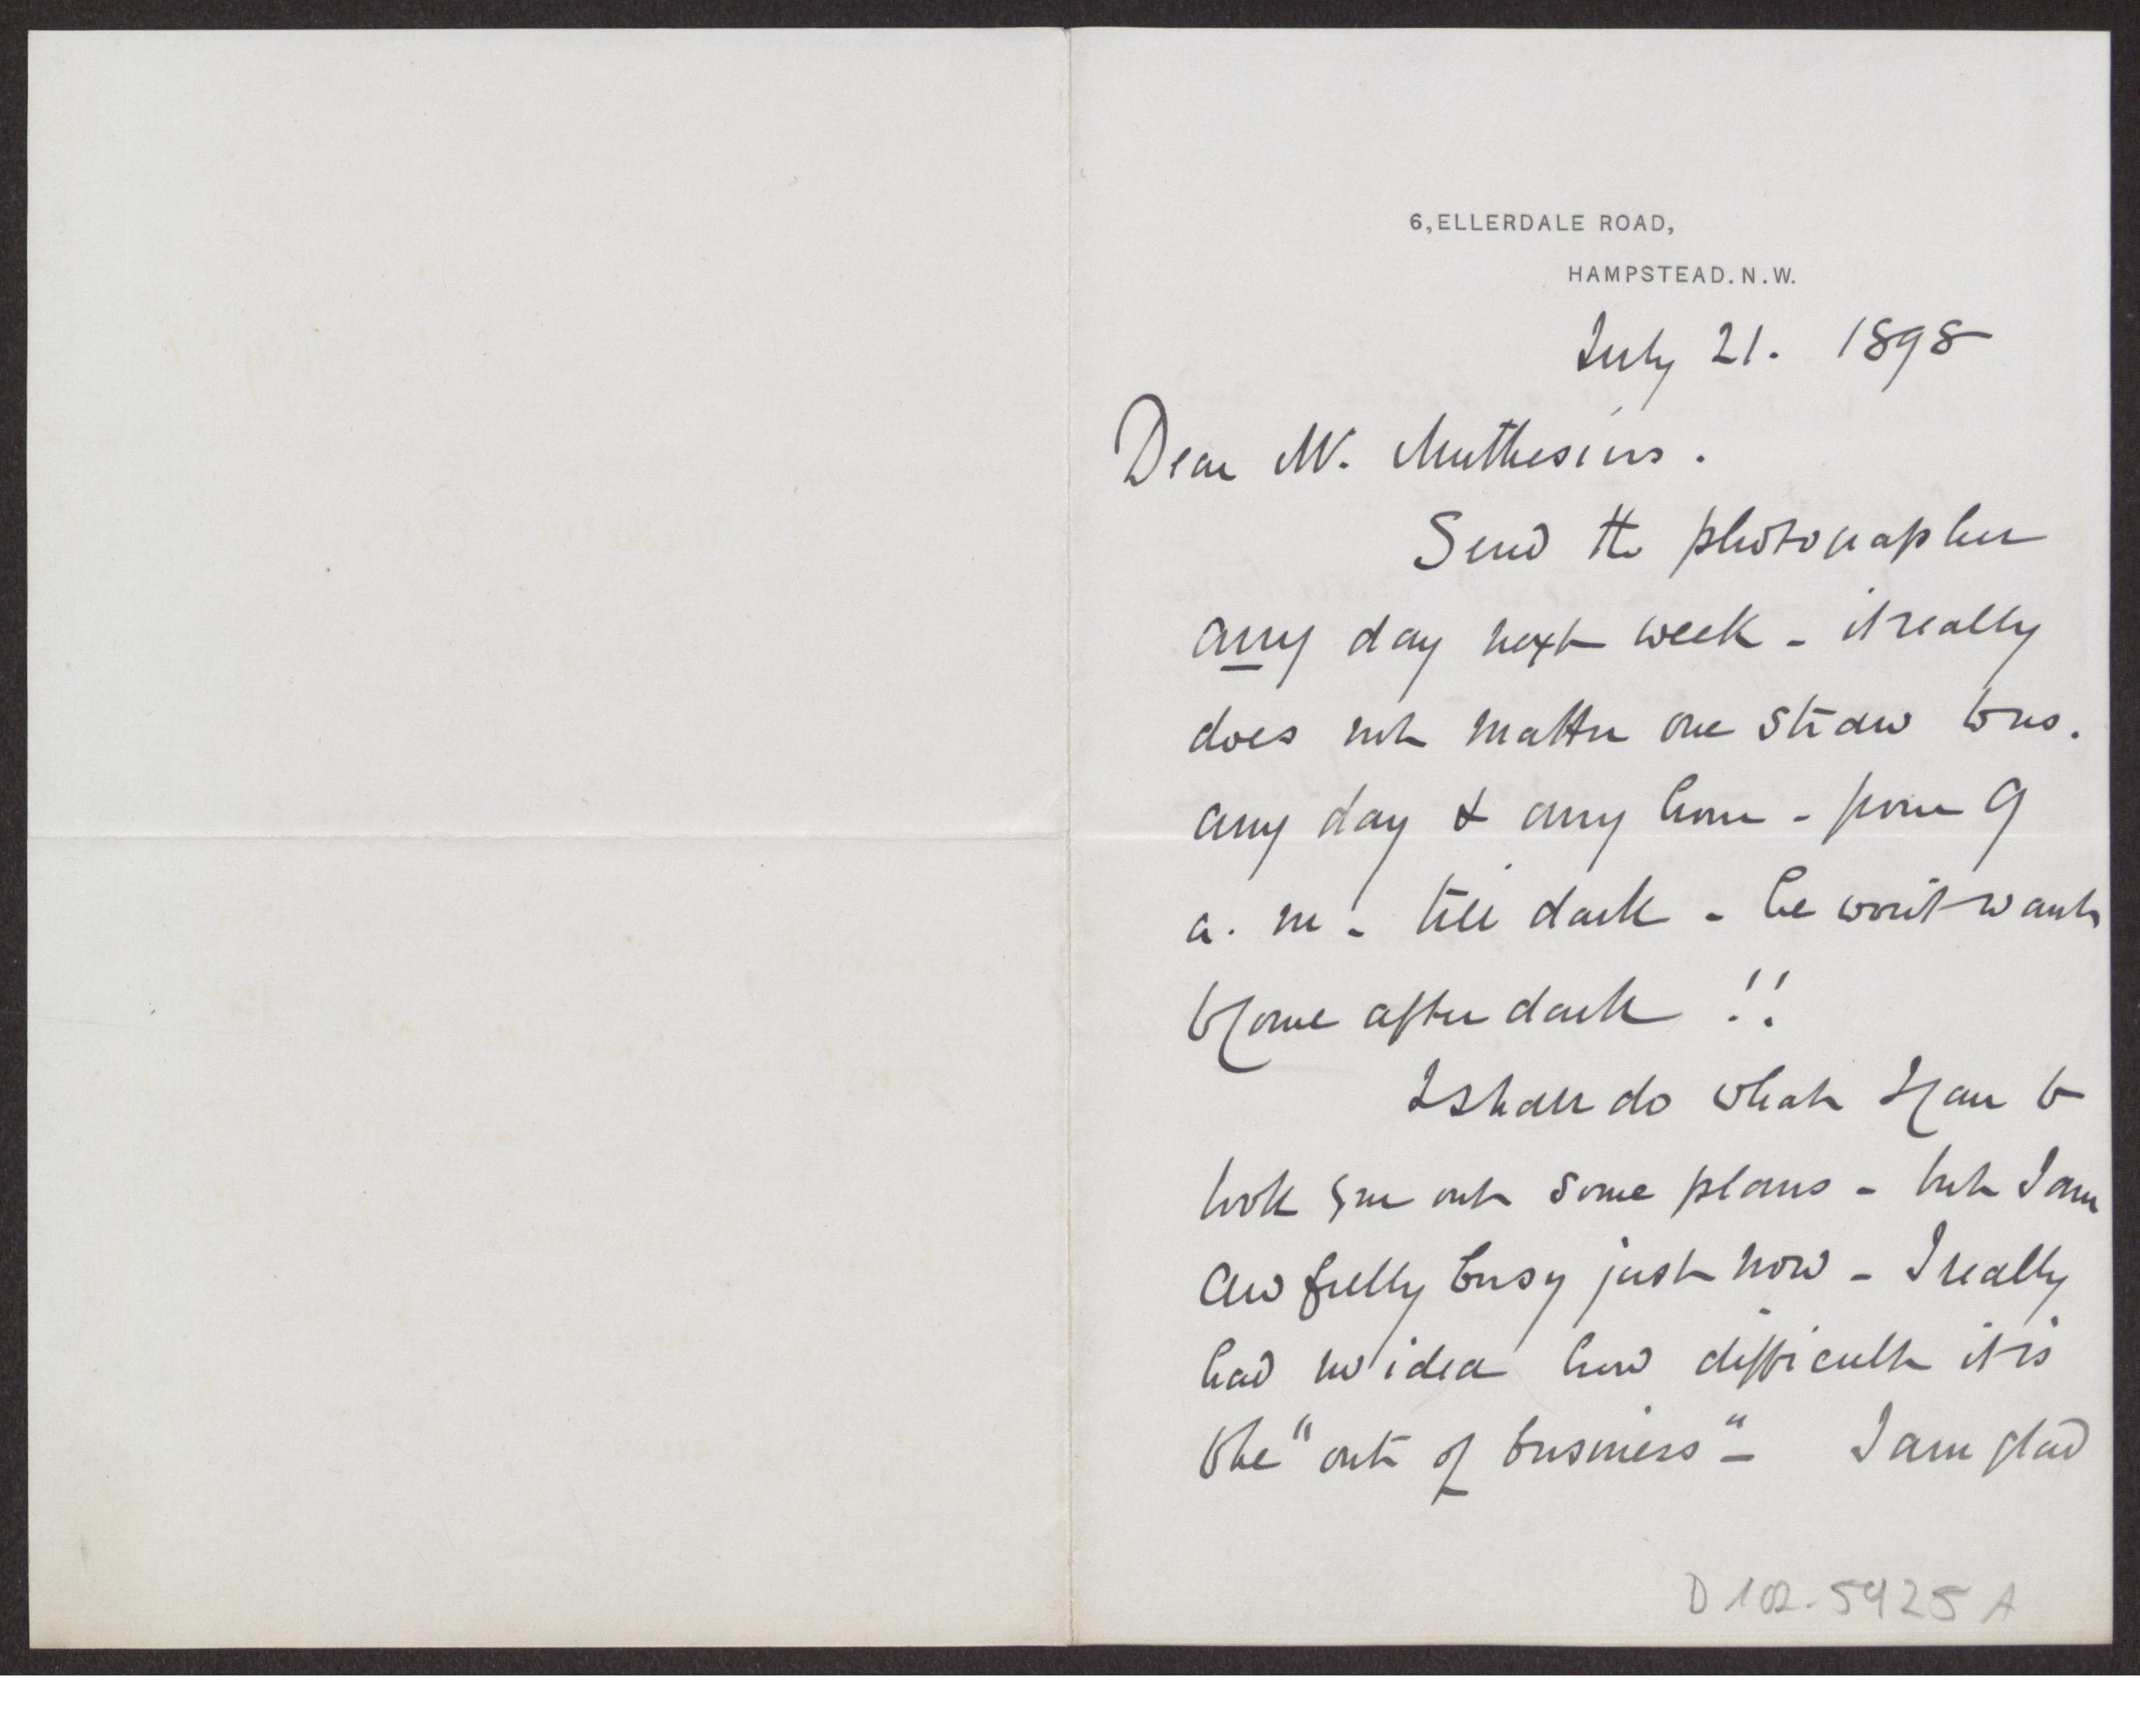 6, ELLERDALE ROAD,
HAMPSTEAD. N. W.
July 21. 1898
Dear Mr. Muthesius.
Send the photographer
any day next week - it really
does not matter one straw to us.
any day & any hour - from 9
a. m - till dark - he won't want
to come after dark !!
I shall do what I can to
look you out some plans - but I am
awfully busy just now - I really
had no idea how difficult it is
to be "out of business" - I am glad
D 102-5925 A